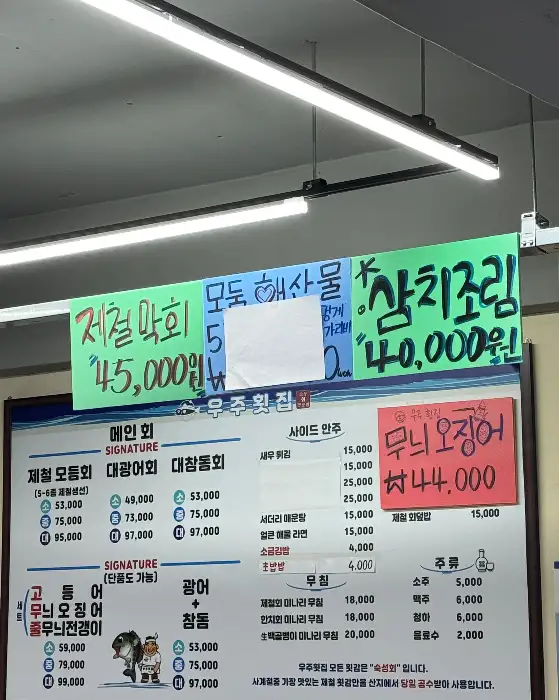 제철막회
45,000원
모둠 해산물
5
성게
가리비
₩
0
삼치조림
40,000원
우주횟집
메인 회
SIGNATURE
제철 모둠회
(5-6종 제철생선)
소 53,000
중 75,000
대 95,000
대광어회
소 49,000
중 73,000
대 97,000
대창동회
소 53,000
중 75,000
대 97,000
SIGNATURE
(단품도 가능)
세트
고등어
무늬오징어
줄무늬전갱이
소 59,000
중 79,000
대 99,000
광어
+
참돔
소 53,000
중 75,000
대 97,000
사이드 안주
새우 튀김 15,000
15,000
25,000
25,000
서더리 매운탕 15,000
얼큰 해물 라면 15,000
소금김밥 4,000
초밥밥 4,000
무침
제철회 미나리 무침 18,000
한치회 미나리 무침 18,000
生백골뱅이 미나리 무침 20,000
우주횟집
무늬오징어
₩44,000
제철 회덮밥 15,000
주류
소주 5,000
맥주 6,000
청하 6,000
음료수 2,000
우주횟집 모든 횟감은 "숙성회" 입니다.
사계절중 가장 맛있는 제철 횟감만을 산지에서 당일 공수받아 사용합니다.